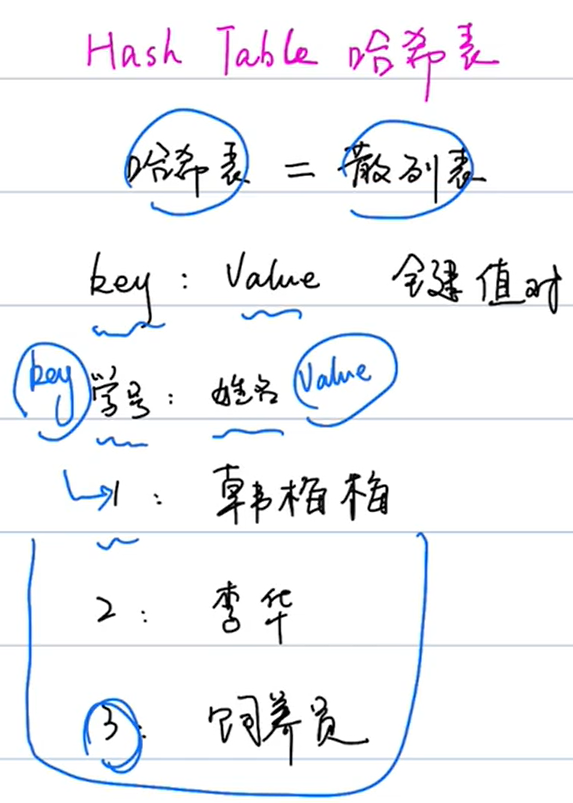 Hash Table 哈希表
哈希表 = 散列表
key : Value 键值对
key 学号 : 姓名 Value
1 : 韩梅梅
2 : 李华
3 : 饲养员